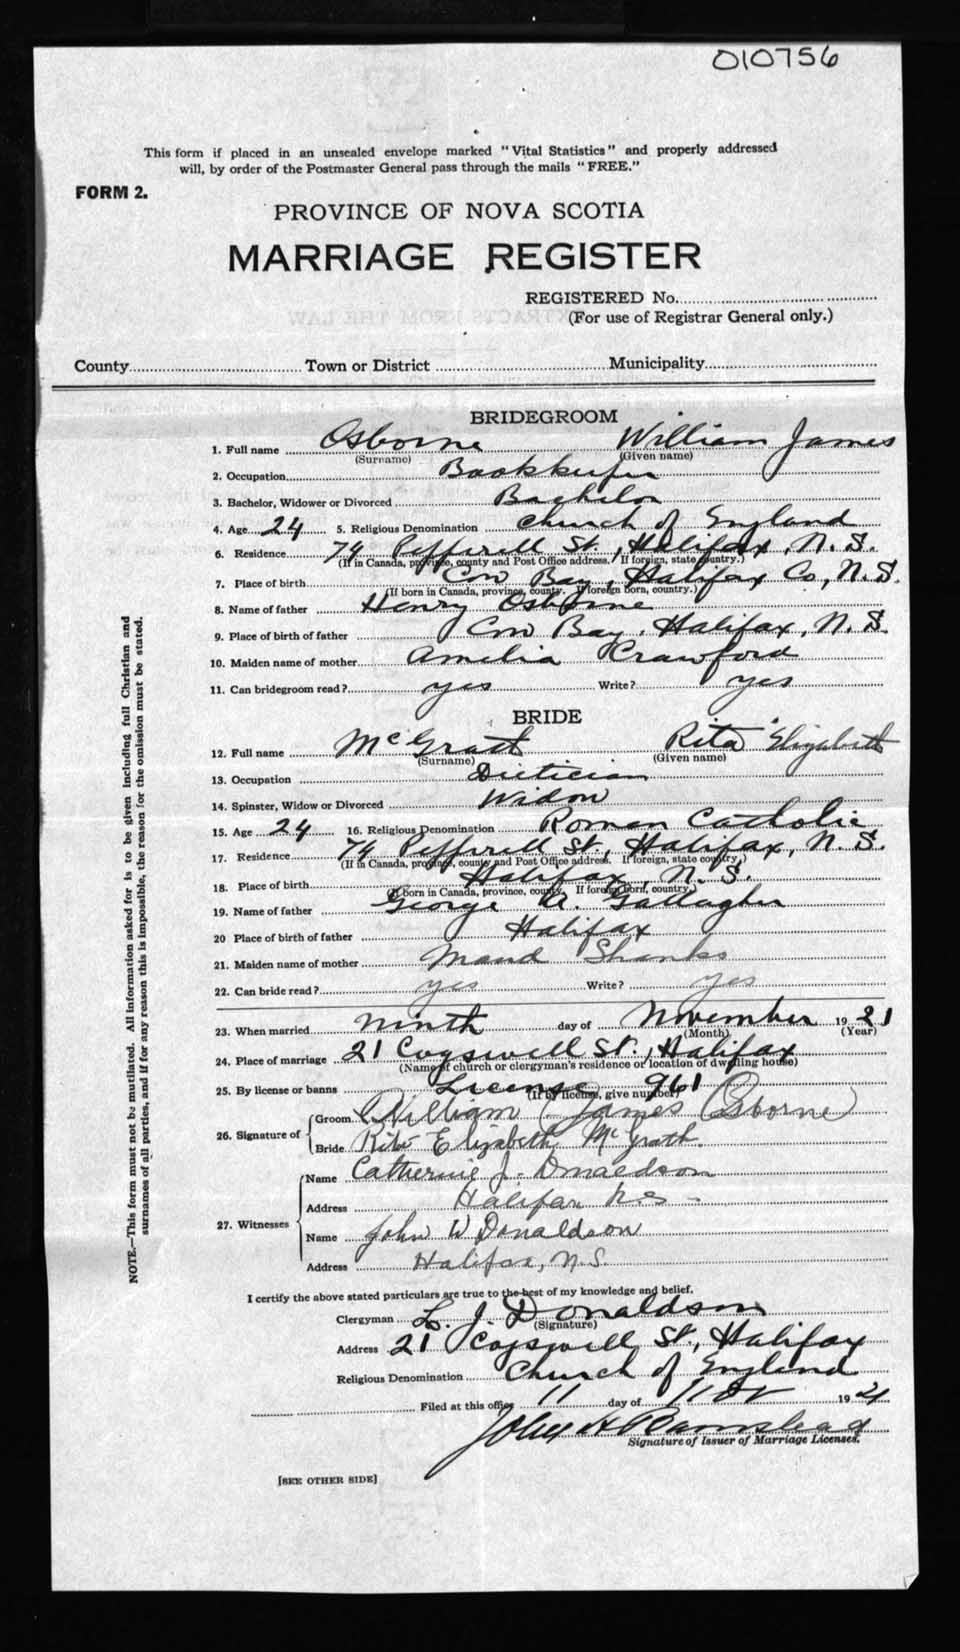 010756
This form if placed in an unsealed envelope marked "Vital Statistics" and properly addressed
will, by order of the Postmaster General pass through the mails "FREE."
FORM 2.
PROVINCE OF NOVA SCOTIA
MARRIAGE REGISTER
REGISTERED No.
(For use of Registrar General only.)
County Town or District Municipality
BRIDEGROOM
1. Full name Osborne William James
(Surname) (Given name)
2. Occupation Bookkeeper
3. Bachelor, Widower or Divorced Bachelor
4. Age 24 5. Religious Denomination Church of England
6. Residence 74 Pepperell St., Halifax, N. S.
(If in Canada, province, county and Post Office address. If foreign, state country.)
7. Place of birth Cow Bay, Halifax Co, N. S.
(If born in Canada, province, county. If foreign born, country.)
8. Name of father Henry Osborne
9. Place of birth of father Cow Bay, Halifax, N. S.
10. Maiden name of mother Amelia Crawford
11. Can bridegroom read? yes Write? yes
BRIDE
12. Full name McGrath Rita Elizabeth
(Surname) (Given name)
13. Occupation Dietician
14. Spinster, Widow or Divorced Widow
15. Age 24 16. Religious Denomination Roman Catholic
17. Residence 74 Pepperell St, Halifax, N. S.
(If in Canada, province, county and Post Office address. If foreign, state country.)
18. Place of birth Halifax, N. S.
(If born in Canada, province, county. If foreign born, country.)
19. Name of father George A. Gallagher
20 Place of birth of father Halifax
21. Maiden name of mother Maud Shanks
22. Can bride read? yes Write? yes
23. When married ninth day of November 1921
(Month) (Year)
24. Place of marriage 21 Cogswell St., Halifax
(Name of church or clergyman's residence or location of dwelling house)
25. By license or banns License 961
(If by license, give number)
26. Signature of Groom William James Osborne
Bride Rita Elizabeth McGrath.
27. Witnesses Name Catherine J. Donaldson
Address Halifax N.S.
Name John W Donaldson
Address Halifax, N.S.
I certify the above stated particulars are true to the best of my knowledge and belief.
Clergyman L. J. Donaldson
(Signature)
Address 21 Cogswell St., Halifax
Religious Denomination Church of England
Filed at this office 11 day of Nov 1921
John H
Signature of Issuer of Marriage Licenses.
[SEE OTHER SIDE]
NOTE.—This form must not be mutilated. All information asked for is to be given including full Christian and
surnames of all parties, and if for any reason this is impossible, the reason for the omission must be stated.